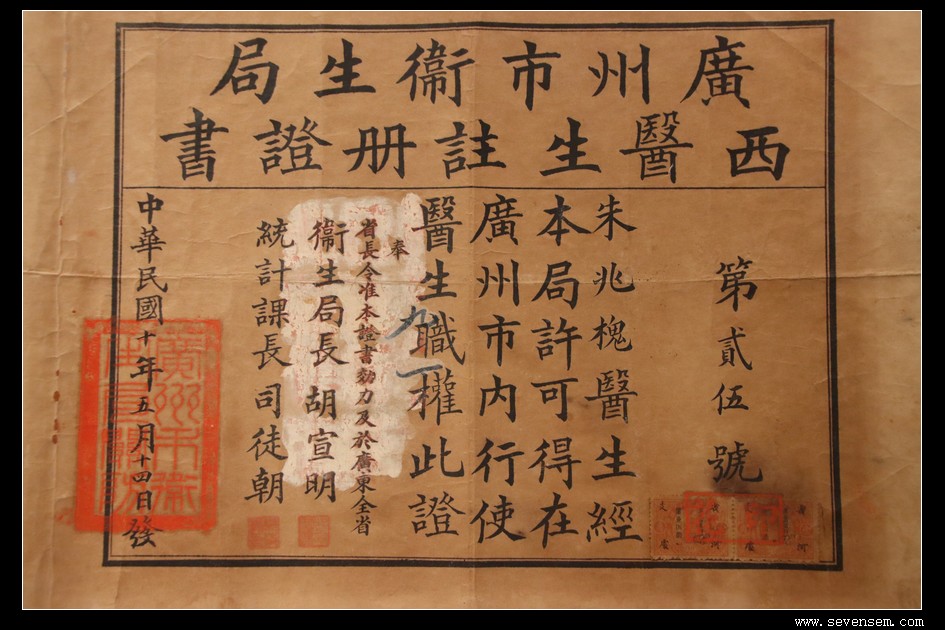 廣州市衞生局
西醫生註册證書
第貳伍號
朱兆槐醫生經
本局許可得在
廣州市內行使
醫生職權此證
奉
省長令准本證書効力及於廣東全省
衞生局長 胡宣明
統計課長司徒朝
中華民國十年五月十四日發
www.sevensem.com